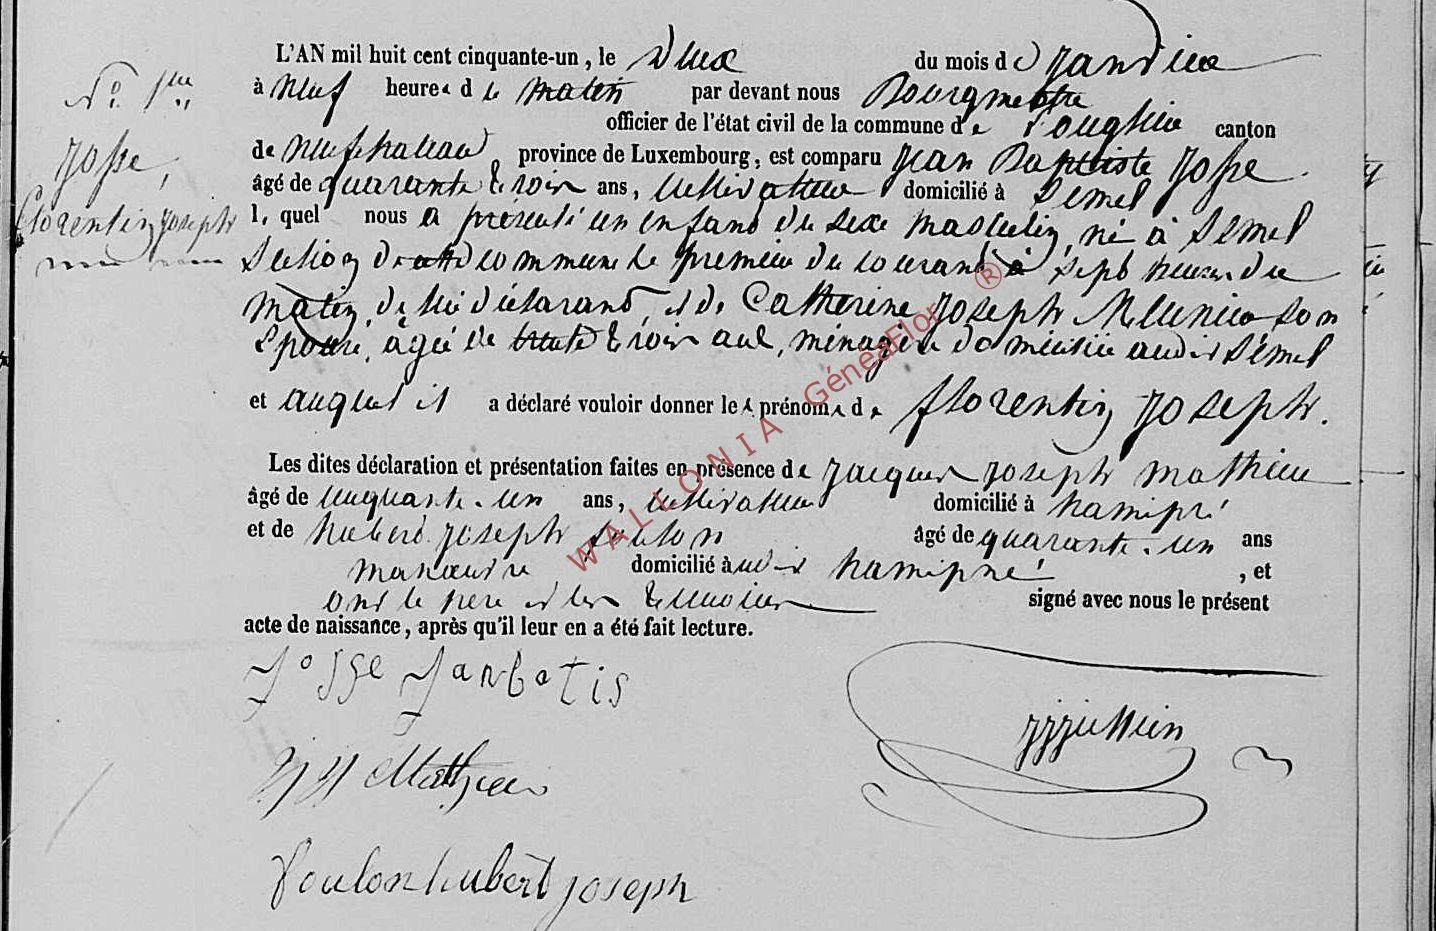 L'AN mil huit cent cinquante-un, le deux du mois de Janvier
à neuf heures du matin par devant nous Bourgmestre
officier de l'état civil de la commune de Longlier canton
de neufchateau, province de Luxembourg, est comparu Jean Baptiste Josse
âgé de quarante trois ans, cultivateur domicilié à Semel
lequel nous a présenté un enfant du sexe masculin, né à Semel
section de cette commune le premier du courant à sept heures du
matin, de lui déclarant, et de Catherine Joseph Meunier son
Epouse, âgée de trente trois ans, ménagère domiciliée audit Semel
et auquel il a déclaré vouloir donner les prénoms de florentin Joseph.
Les dites déclaration et présentation faites en présence de Jacques Joseph mathieu
âgé de cinquante-un ans, cultivateur domicilié à hamipré
et de hubert Joseph âgé de quarante-un ans
manoeuvre domicilié audit hamipré, et
ont le père et les témoins signé avec nous le présent
acte de naissance, après qu'il leur en a été fait lecture.
N° 1er
Josse,
florentin Joseph
Josse Janbatis
JJ Mathieu
hubert joseph
WALLONIA GénéaFlor ®